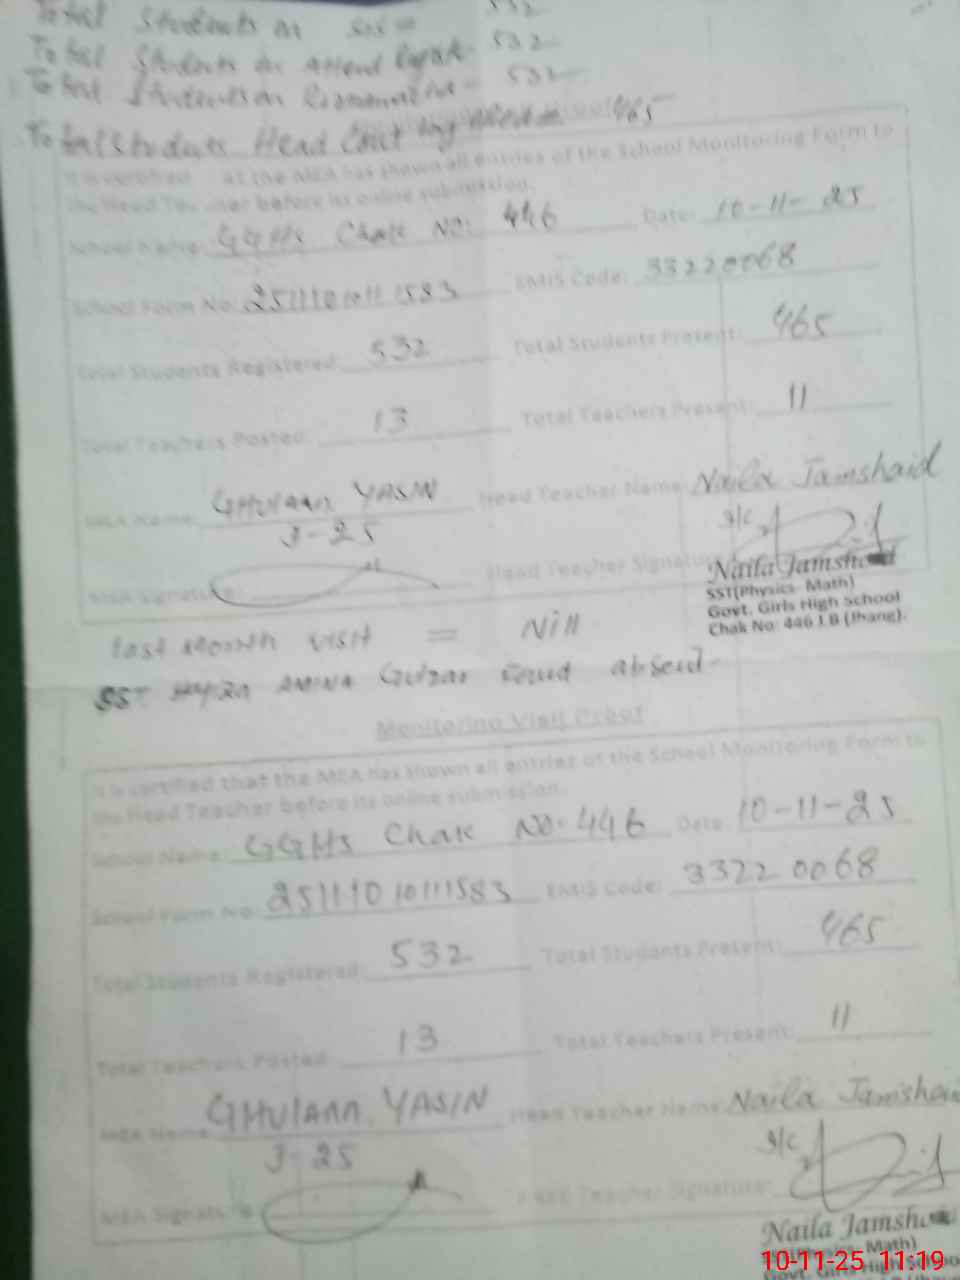 Total Students on SIS = 532
Total Students on Attend 532
Total Students on 532
Total Students Head 465
It is certified at the MEA has shown all entries of the School Monitoring Form to
the Head Teacher before its online submission.
School Name: GGHS Chak No: 446 Date: 10-11-25
School Form No: 2511101011583 EMIS Code: 33220068
Total Students Registered: 532 Total Students Present: 465
Total Teachers Posted: 13 Total Teachers Present: 11
MEA Name: GHULAM YASIN Head Teacher Name: Naila Jamshaid
J-25
I/C
MEA Signature: Head Teacher Signature:
Naila Jamshaid
SST(Physics- Math)
Govt. Girls High School
Chak No: 446 J.B (Jhang).
last Month visit = Nill
SST AMINA found absent-
Monitoring Visit Proof
It is certified that the MEA has shown all entries of the School Monitoring Form to
the Head Teacher before its online submission.
School Name: GGHS Chak No: 446 Date: 10-11-25
School Form No: EMIS Code: 33220068
Total Students Registered: 532 Total Students Present: 465
Total Teachers Posted: 13 Total Teachers Present: 11
MEA Name: GHULAM YASIN Head Teacher Name: Naila Jamshaid
J-25
I/C
MEA Signature: Teacher Signature:
Naila Jamsh
Math)
Govt. Girls High School
10-11-25 11:19